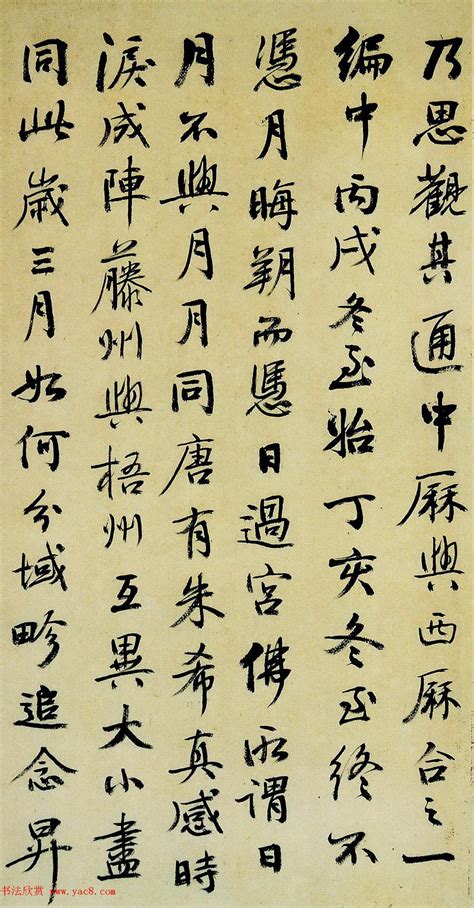 乃思觀其通中厤與西厤合之一
編中丙戌冬至始丁亥冬至終不
憑月晦朔而憑日過宮佛所謂日
月不與月月同唐有朱希真感時
淚成陣藤州與梧州互異大小盡
同此歲三月如何分域畛追念昇
书法欣赏 www.yac8.com